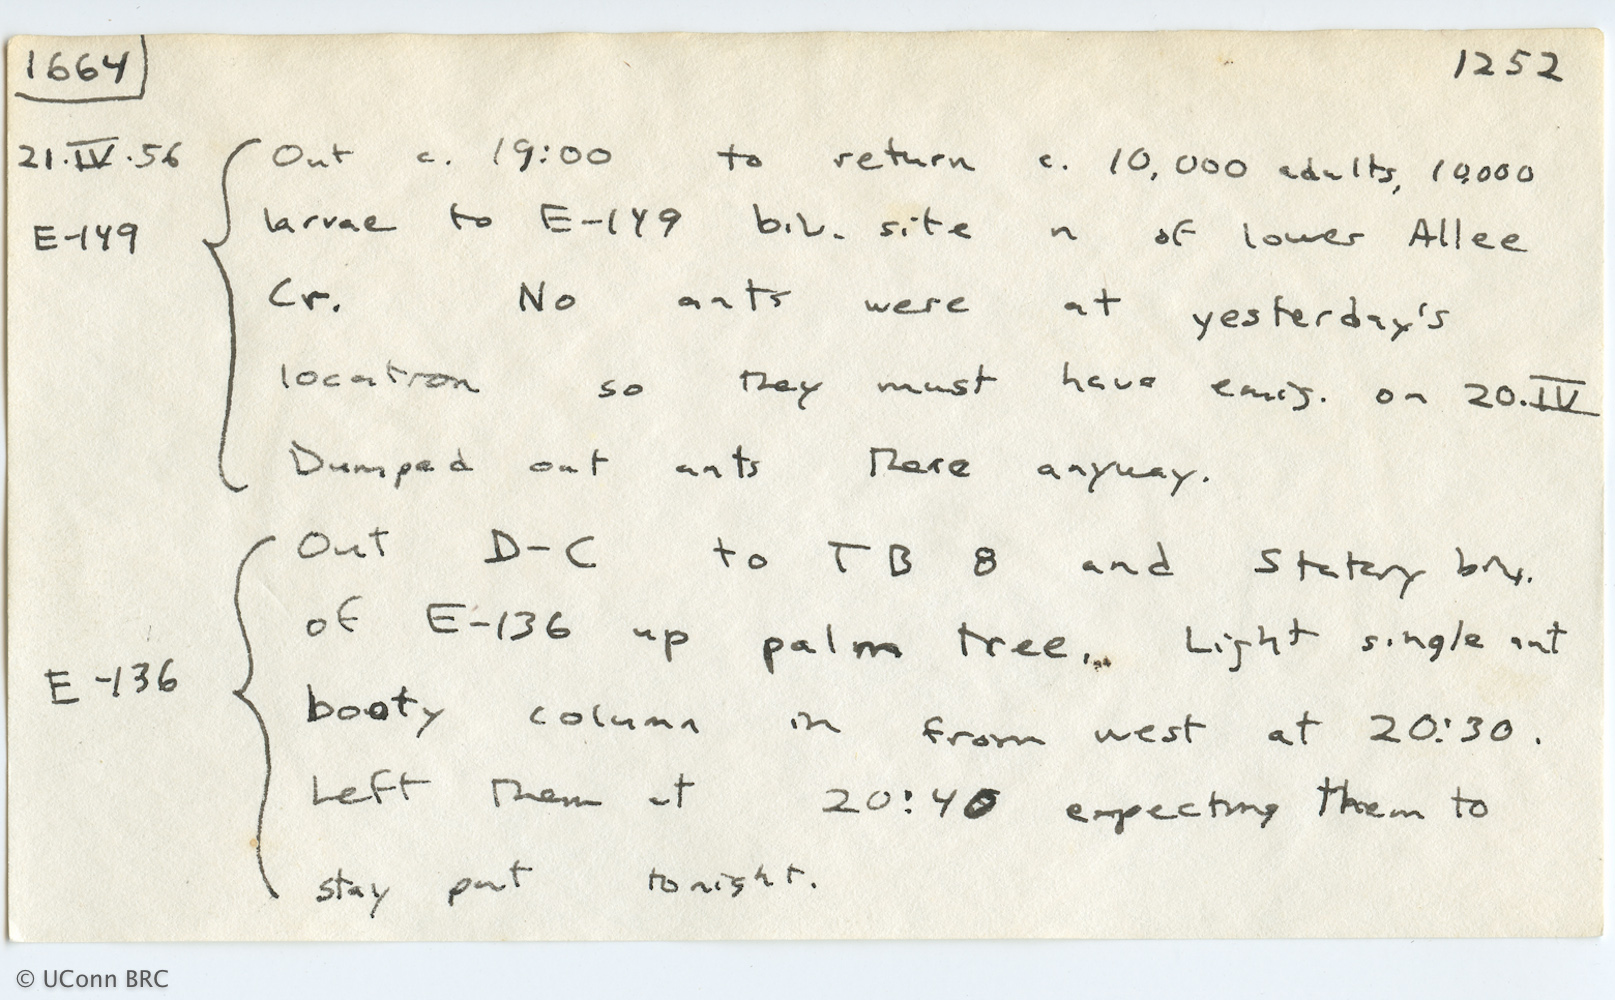 1664 1252
21.IV.56 Out c. 19:00 to return c. 10,000 adults, 10,000
E-149 larvae to E-149 biv. site n of lower Allee
Cr. No ants were at yesterday's
location so they must have emig. on 20.IV
Dumped out ants there anyway.
Out D-C to TB 8 and Statary biv.
of E-136 up palm tree. Light single ant
E-136 booty column in from west at 20:30.
Left them at 20:40 expecting them to
stay put tonight.
© UConn BRC